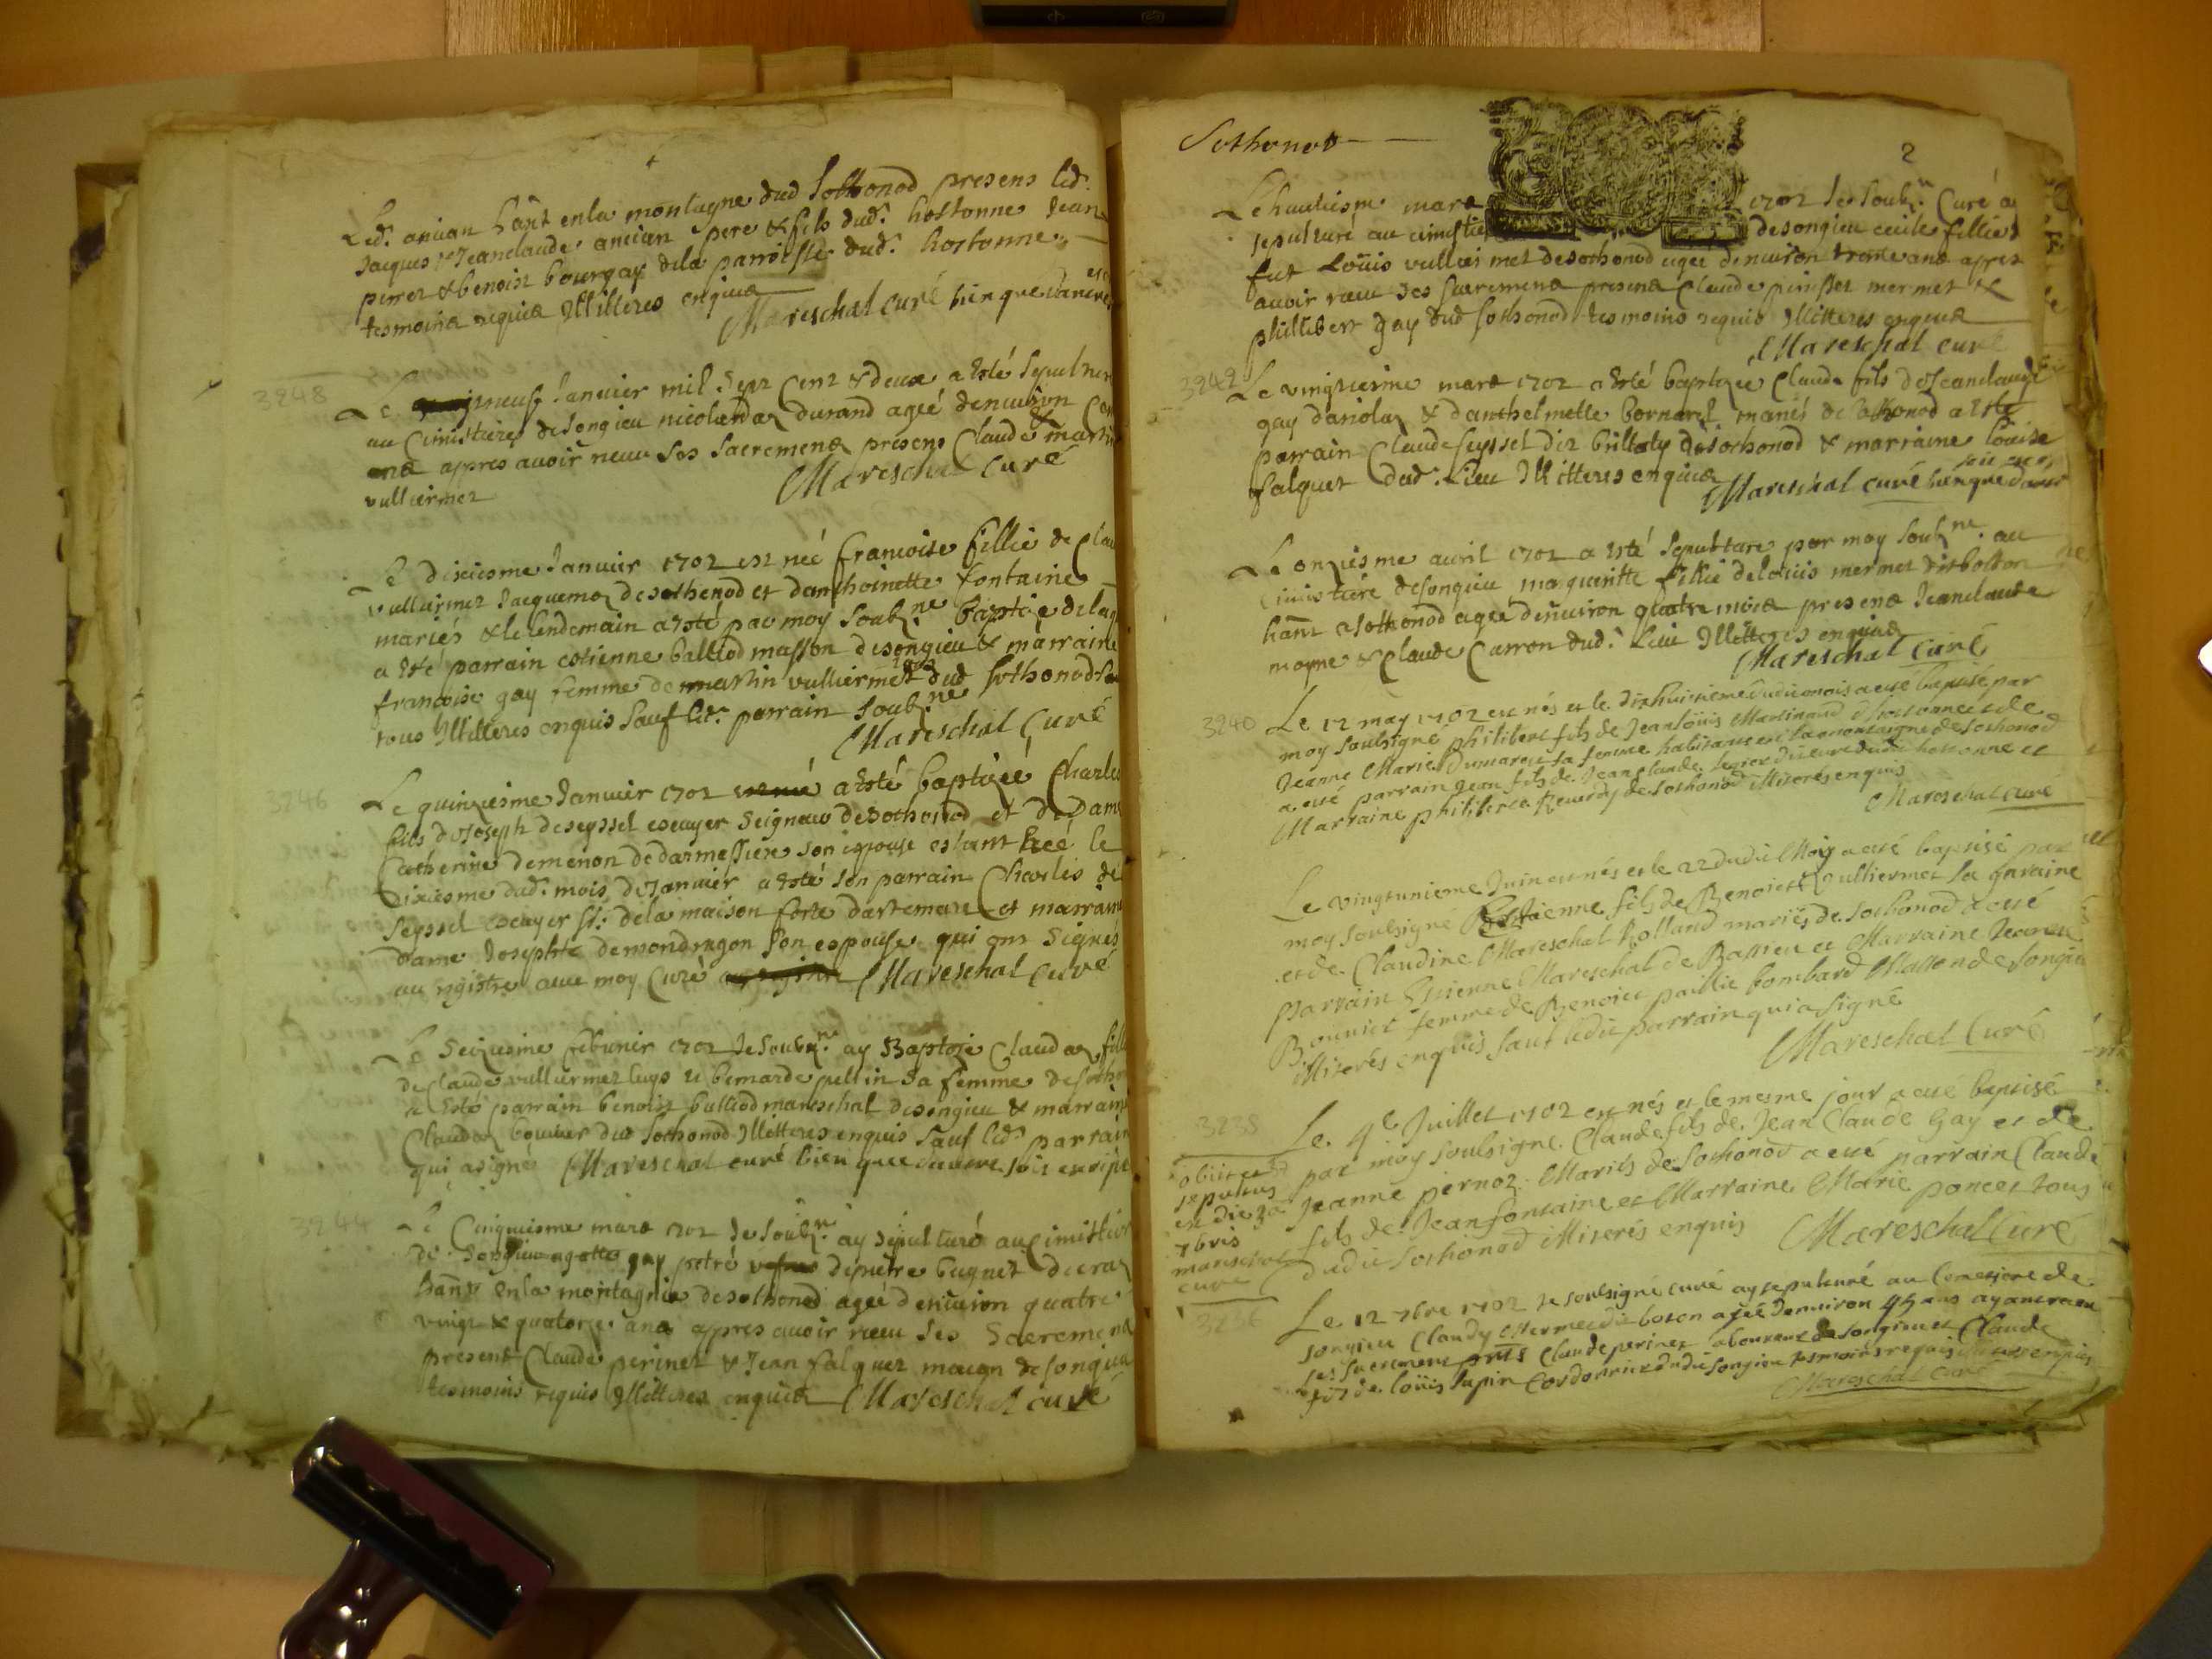 Led. ancian hant en la montagne dud Sothonod presens led.
Jacques & Jeanclaude ancien pere & fils dud. hostonne Jean
perret & benoist bourgay dela parroisse dud. hostonne
tesmoins requis Illitteres enquis
Mareschal curé bien que dancre
3248
Le neuf Janvier mil sept Cent & deux a esté sepulture
au Cimistiere de songieu nicolarde durand ageé denuiron
ans appres auoir receu ses sacremens presens Claude & martin
vulliermet
Mareschal curé
Le dixiesme Januier 1702 est neé francoise fillie de Clau
vulliermet Jacquemoz de sothonod et danthoinette fontaine
mariés & le lendemain a esté par moy soubz.ne baptizé
a esté parrain estienne balliod masson de songieu & marraine
francoise gay femme de martin vulliermet dud sothonod
tous Illitteres enquis sauf led. parrain soubz.ne
Mareschal Curé
3246
Le quinziesme Januier 1702 a esté baptizeé Charles
fils de Joseph de seyssel escuyer seigneur de sothonod et de Dame
Catherine demenon de darmessieu son espouse estant neé le
dixiesme dud. mois de Januier a esté son parrain Charles de
seyssel escuyer sr. de la maison forte dartemare et marraine
Dame Josephte demondragon son espouse qui ont signés
au registre auec moy Curé Mareschal Curé
Le seiziesme feburier 1702 Je soubz.ne ay Baptizé Claudaz fille
de Claude vulliermet lugo et bernarde pellin sa femme de sotho
a esté parrain benoist balliod mareschal de songieu & marraine
Claudaz bouuier dud sothonod Illitteres enquis sauf led. parrain
qui a signé Mareschal curé bien que dancre soit escript
3244
Le Cinquiesme mars 1702 Je soubz.ne ay sepulturé au Cimistiere
de songieu gay petré de pietre bugnet
hant en la montagnie de sothonod ageé denuiron quatre
vingt & quatorze ans appres auoir receu ses sacremens
present Claude perinet & Jean falquet maçon de songieu
tesmoins requis Illitteres enquis Mareschal curé
Sothonod
2
Le huictiesme mars 1702 Je soubz.ne Curé ay
sepulture au cimistiere de songieu fillie
fut Loüis vulliermet de sothonod ageé denuiron trente ans apres
auoir receu ses sacremens presens Claude mermet &
phillibert gay dud sothonod tesmoins requis Illitteres enquis
Mareschal curé
3242
Le vingtiesme mars 1702 a esté baptizé Claude fils de Jeanclaude
gay dariolaz & danthelmette bornarel mariés de sothonod a esté
parrain Claude seyssel dit brillaty de sothonod & marraine loüise
falquet dud. lieu Illitteres enquis
Mareschal curé bien que dancre
Le onziesme auril 1702 a esté sepulture par moy soubz.ne au
Cimistiere de songieu margueritte fillie de loüis mermet dit bolton
hant a sothonod ageé denuiron quatre mois presens Jeanclaude
moyne & Claude Carron dud. lieu Illitteres enquis
Mareschal Curé
3240
Le 12 may 1702 est nés et le dixhuitieme dudit mois a esté baptisé par
moy soulsigné philibert fils de Jean loüis Martinand dhostonne et de
Jeanne Marie Dumarest sa femme habitants en la montaigne de sothonod
a esté parrain Jean fils de Jean Claude dudit hostonne et
Marraine philiberte Reuerdy de sothonod Illiterés enquis
Mareschal curé
Le vingtunieme Juin est nés et le 22 dudit Mois a esté baptisé par
moy soulsigné Estienne fils de Benoict vulliermet la garaine
et de Claudine Mareschal Rolland mariés de sothonod a esté
parrain Estienne Mareschal de Bassieu et Marraine Jeanne
Bouuier femme de Benoict paillie bombard Masson de songieu
Illiterés enquis sauf ledit parrain qui a signé
Mareschal Curé
3238
Le 4e Juillet 1702 est nés et le mesme jour a esté baptisé
par moy soulsigné Claude fils de Jean Claude Gay et de
Jeanne pernoz Mariés de Sothonod a esté parrain Claude
fils de Jean fontaine et Marraine Marie poncet tous
dudit Sothonod Illiterés enquis Mareschal Curé
obiit et
sepultus
est die 30
7bris
mareschal
curé
3236
Le 12 7bre 1702 Je soulsigné curé ay sepulturé au Cimetiere de
songieu Claudy Mermet dit boton ageé denuiron 45 ans ayant receu
ses sacrement pnts Claude perinet laboureur de songieu et Claude
fils de loüis lupin Cordonnier dudit songieu tesmoins requis Illiterés enquis
Mareschal curé